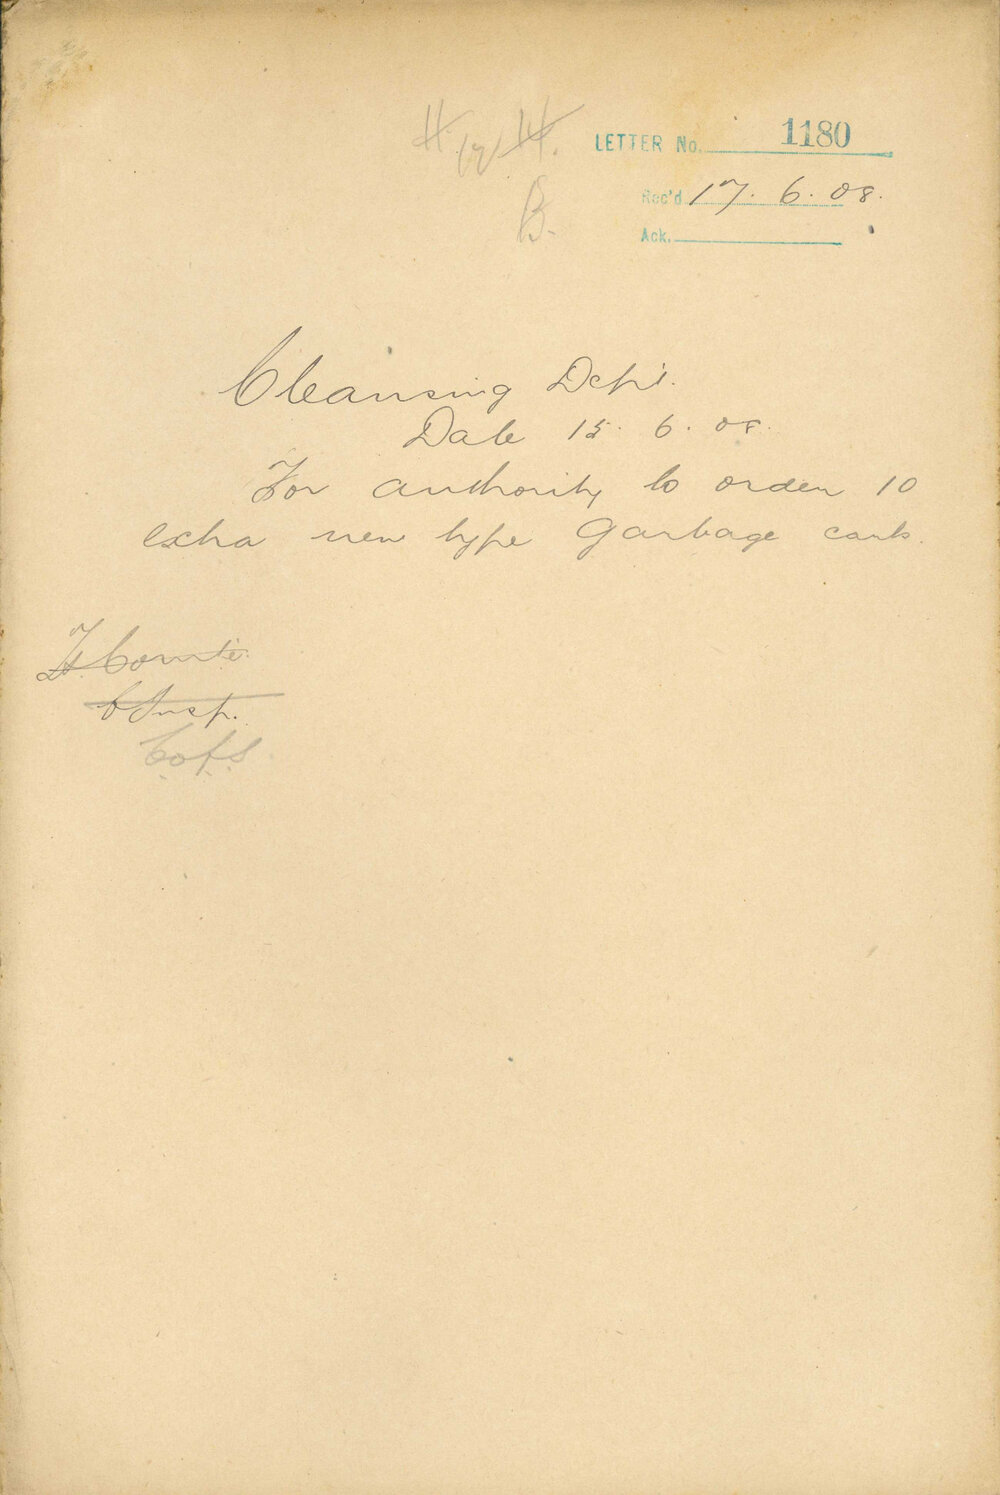 H. & H.
LETTER No. 1180
B.
Rec'd 17. 6. 08.
Ack.
Cleansing Dept.
Date 15. 6. 08.
For authority to order 10
extra new type Garbage carts.
H. Comte.
C Insp.
C of S